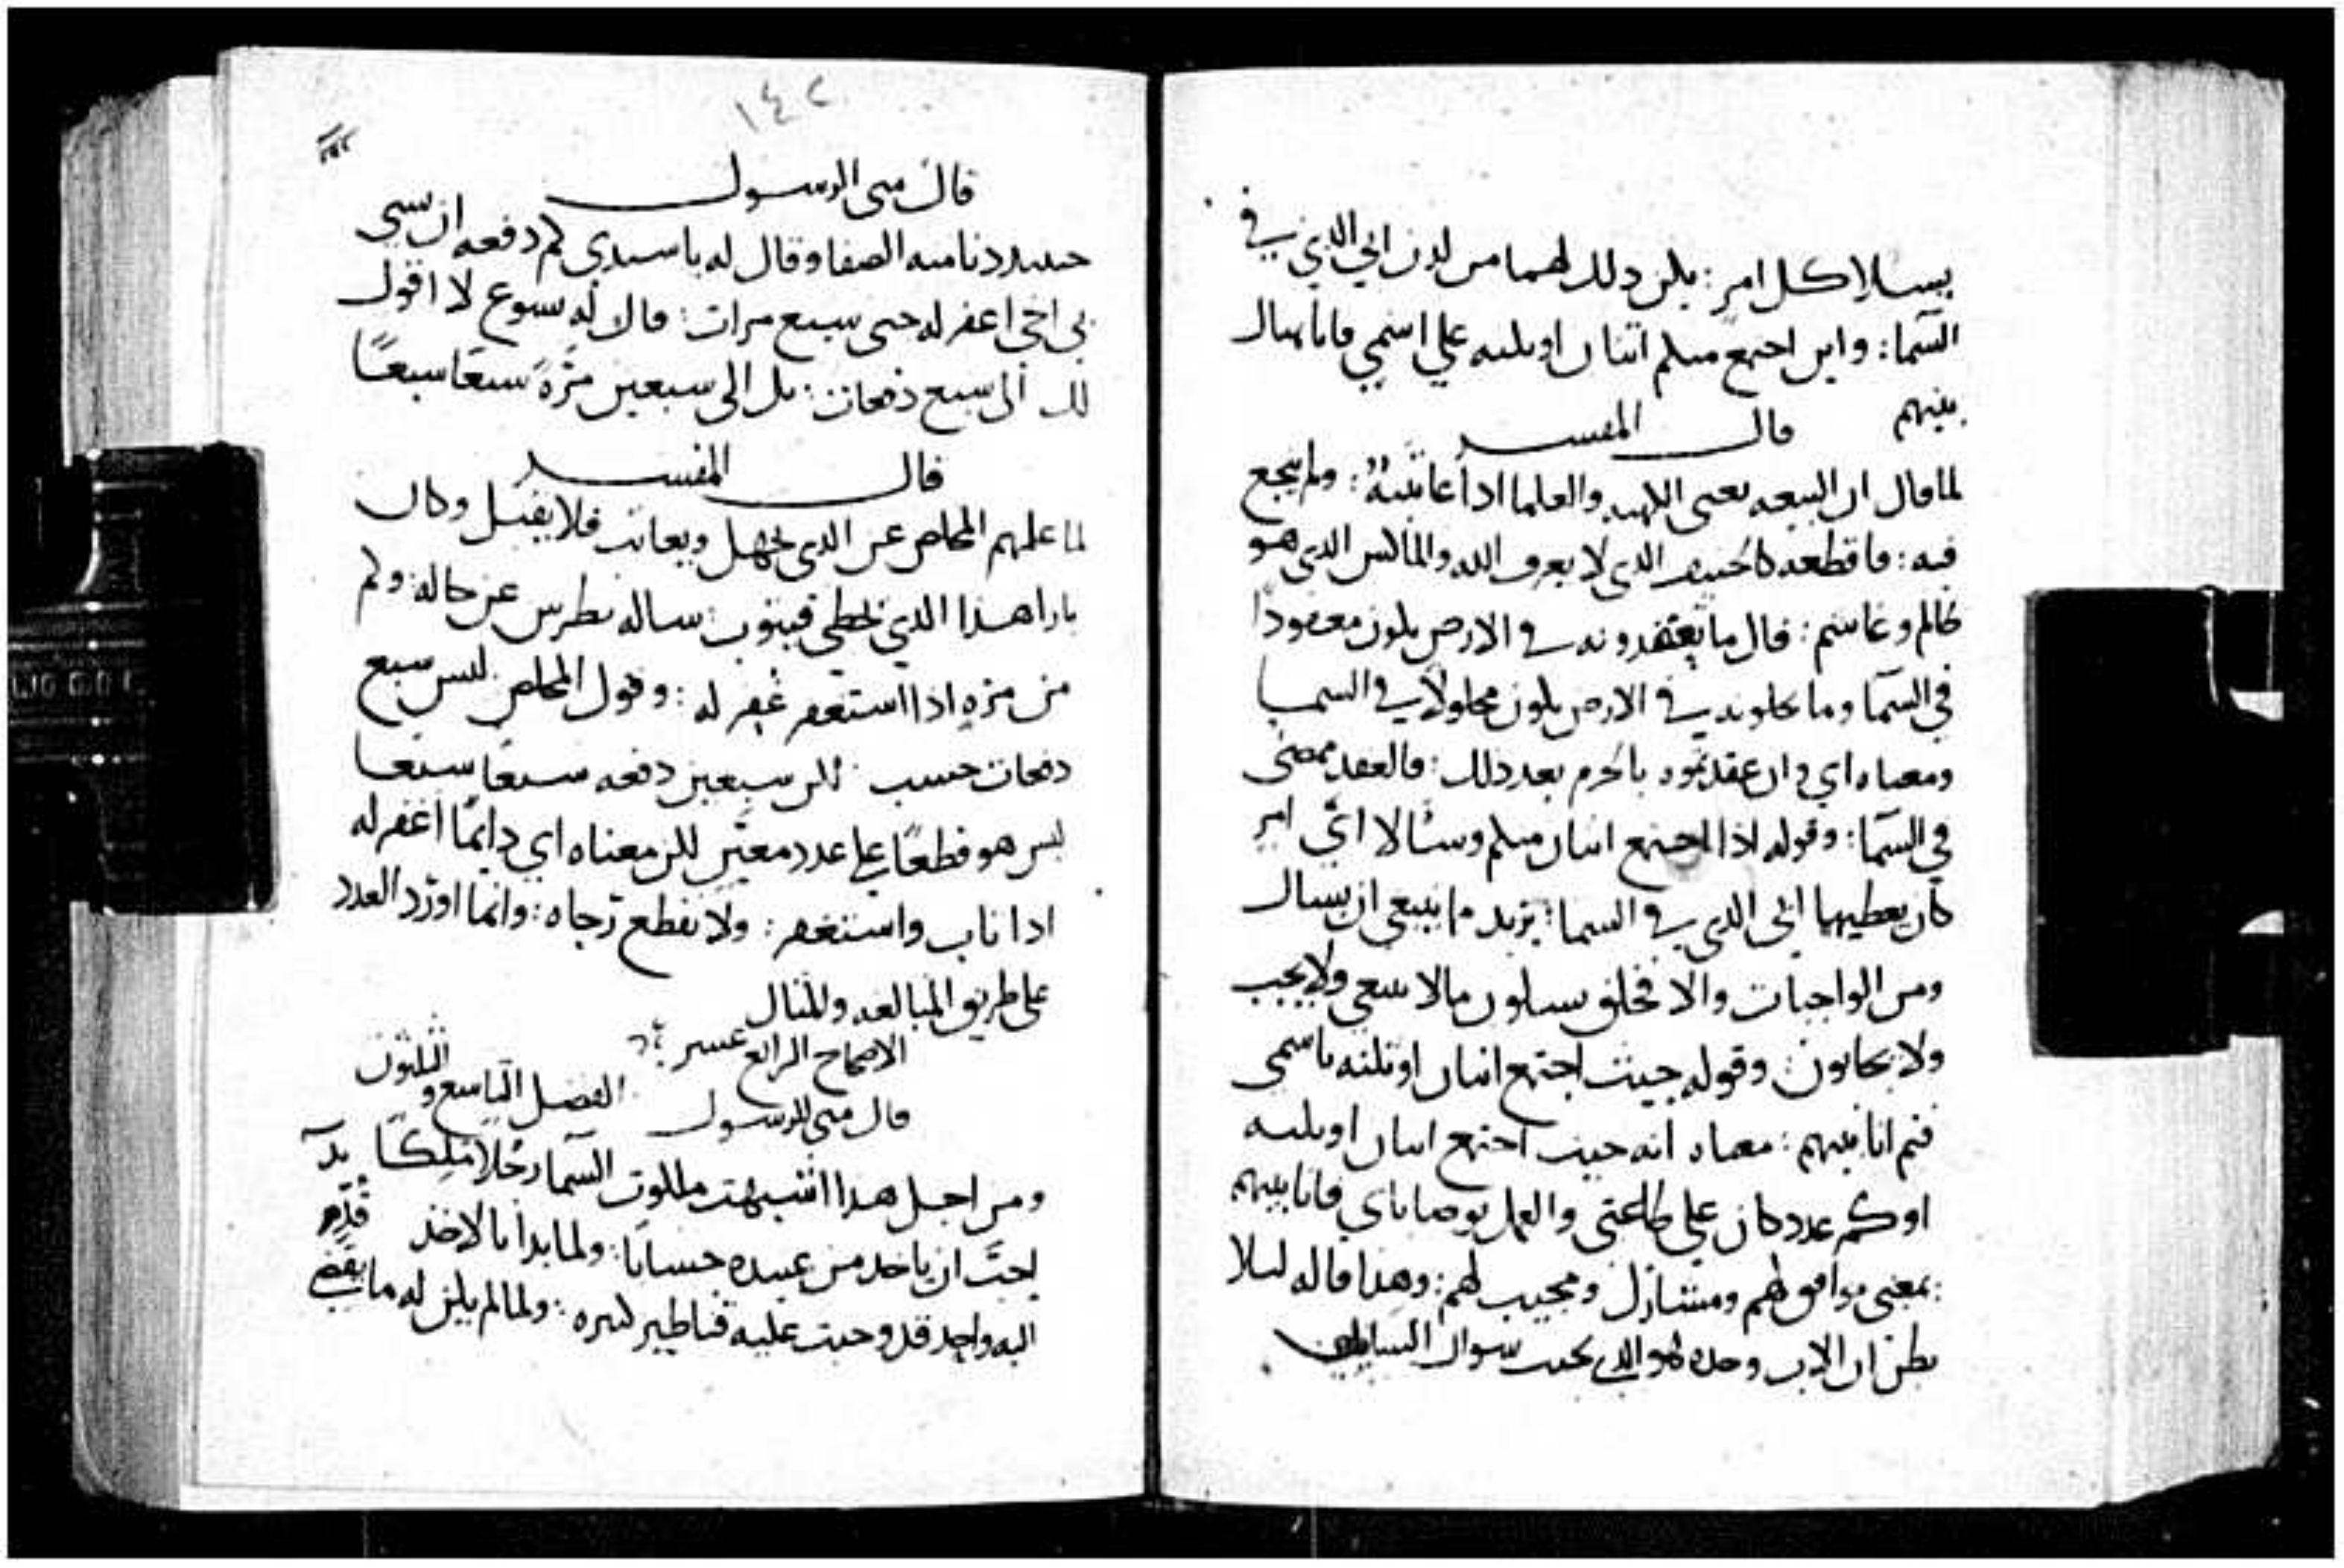 يسالا كل امر: يكن ذلك لهما من لدن ابي الذي في
السما: واين اجتمع منكم اتنان او تلته علي اسمي فانا هناك
بينهم قال المفسر
لما قال ان البيعه يعني الكهنه والعلما اذا عاتبته: ولم ينجع
فيه: فاقطعه كالحنيف الذي لا يعرف الله والماكس الذي هو
ظالم وغاشم: قال ما تعقدونه في الارض يكون معقودا
في السما وما تحلونه في الارض يكون محلولا في السما
ومعناه اي وان عقدتموه بالحرم بعد ذلك: فالعقد ممضى
في السما: وقوله اذا اجتمع اتنان منكم وسالا اي امر
كان يعطيهما ابي الذي في السما: يريد ما ينبغي ان يسال
ومن الواجبات والا فخلق يسلون مالا ينبغي ولا يجب
ولا يجابون: وقوله حيث اجتمع اتنان او تلته باسمي
فتم انا بينهم: معناه انه حيث اجتمع اتنان او تلته
او كم عدد كان علي طاعتي والعمل بوصاياي فانا بينهم
بمعني موافق لهم ومشارك ومجيب لهم: وهذا قاله ليلا
يظن ان الاب وحده هو الذي يجيب سوال السايلين
١٤٢
قال متى الرسول
حينيذ دنا منه الصفا وقال له يا سيدي كم دفعه ان يسي
بي اخي اغفر له حتى سبع مرات: قال له يسوع لا اقول
لك الى سبع دفعات: بل الى سبعين مرة سبعًا سبعًا
قال المفسر
لما علمهم المخلص عن الذي يجهل ويعاتب فلا يقبل وكان
بازا هذا الذي يخطي فيتوب: ساله بطرس عن حاله: وكم
من مره اذا استغفر غفر له: وقول المخلص ليس سبع
دفعات حسب: لكن سبعين دفعه سبعًا سبعًا
ليس هو قطعًا علي عدد معين لكن معناه اي دايمًا اغفر له
اذا تاب واستغفر: ولا تقطع رجاه: وانما اورد العدد
على طريق المبالغه والمثال
الاصحاح الرابع عشر
الفصل التاسع والتلتون
قال متى الرسول
ومن اجل هذا اشبهت ملكوت السما رجلا ملكًا
احب ان ياخد من عبيده حسابًا: ولما بدا بالاخذ قدم
اليه واحد قد وجبت عليه قناطير كثيره: ولما لم يكن له ما يقضي